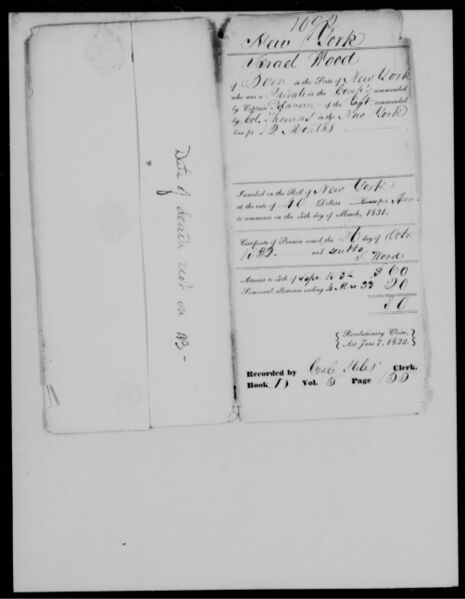 New York
Israel Wood
of in the State of New York
who was a Private in the Comp'y commanded
by Captain of the Regt commanded
by Col. Thomas in the New York
line for 12 Months
Inscribed on the Roll of New York
at the rate of 40 Dollars Cents per Ann.
to commence on the 4th day of March, 1831.
Certificate of Pension issued the 26 day of Octr.
1832 and
Wood
Arrears to 4th of Sept. 1832 $60
Semi-anl. allowance ending 4 Mar 33 20
80
{Revolutionary Claim,
Act June 7, 1832.}
Recorded by Clerk.
Book D Vol. 5 Page
Date of death not on